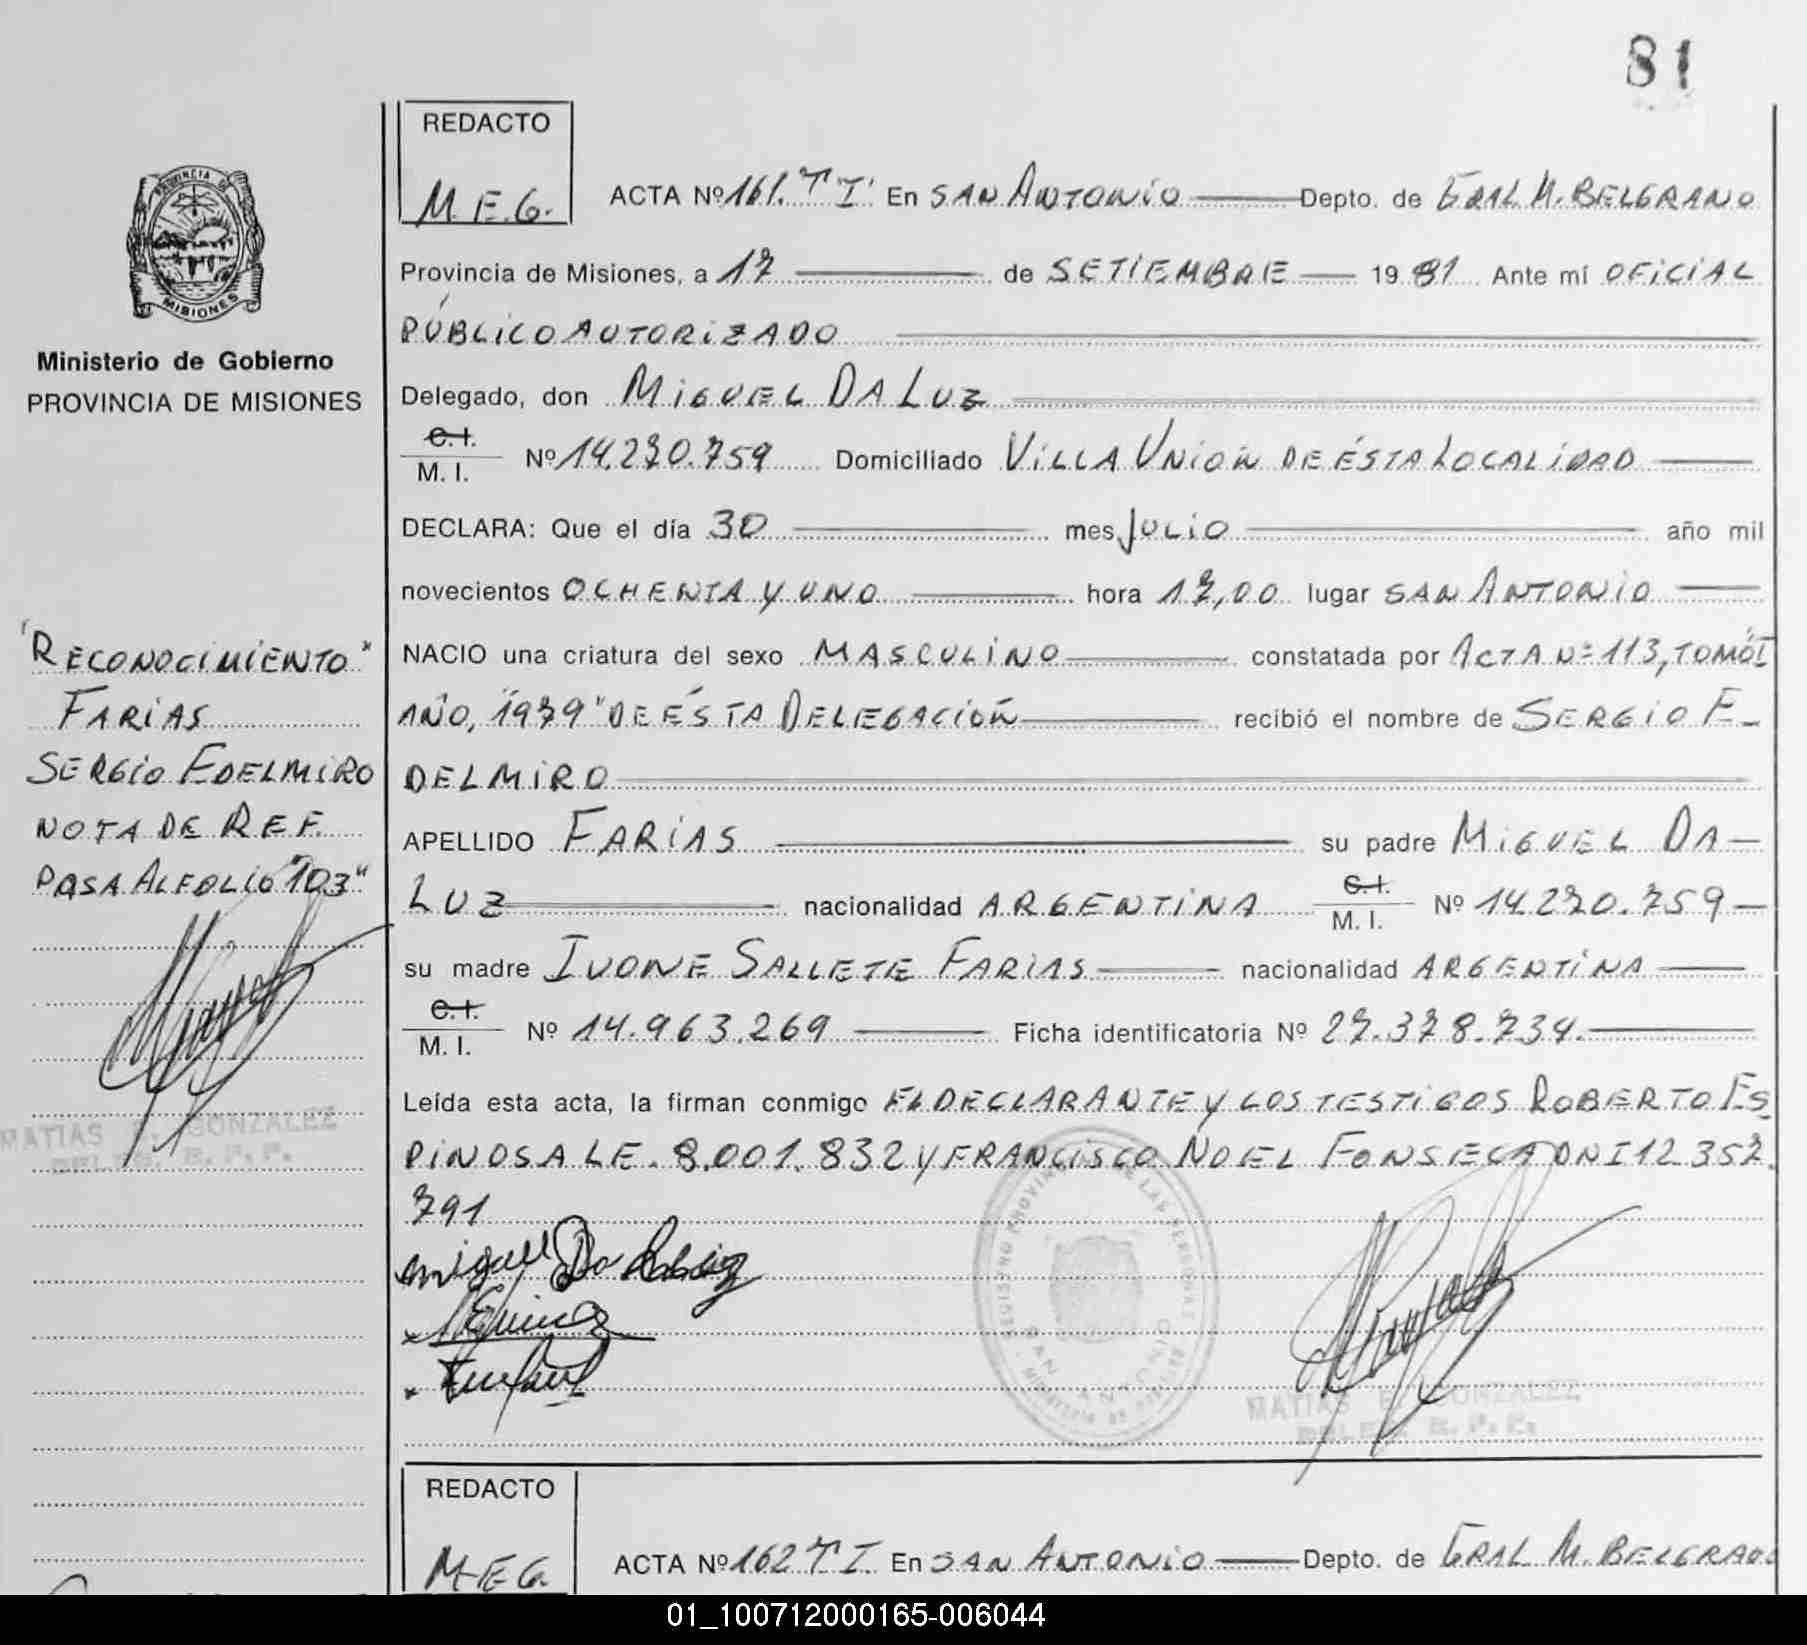 81
REDACTO
M.E.G.
ACTA Nº 161. T I. En SAN ANTONIO Depto. de GRAL M. BELGRANO
Provincia de Misiones, a 17 de SETIEMBRE 1981 Ante mí OFICIAL
PÚBLICO AUTORIZADO
Delegado, don MIGUEL DA LUZ
C.I.
M. I. Nº 14.270.759 Domiciliado VILLA UNION DE ÉSTA LOCALIDAD
DECLARA: Que el día 30 mes JULIO año mil
novecientos OCHENTA Y UNO hora 17,00 lugar SAN ANTONIO
NACIO una criatura del sexo MASCULINO constatada por ACTA Nº 113, TOMO I
AÑO, "1979" DE ÉSTA DELEGACIÓN recibió el nombre de SERGIO E-
DELMIRO
APELLIDO FARIAS su padre MIGUEL DA
LUZ nacionalidad ARGENTINA C.I. M. I. Nº 14.270.759
su madre IVONE SALLETE FARIAS nacionalidad ARGENTINA
C.I.
M. I. Nº 14.963.269 Ficha identificatoria Nº 27.378.734.
Leída esta acta, la firman conmigo EL DECLARANTE Y LOS TESTIGOS ROBERTO ES
PINOSA LE. 8.001.832 Y FRANCISCO NOEL FONSECA DNI 12.357.
791
Miguel Da Luz
REGISTRO PROVINCIAL DE LAS PERSONAS
SAN ANTONIO
MATIAS E. GONZALEZ
DELEG. R. P. P.
PROVINCIA DE
MISIONES
Ministerio de Gobierno
PROVINCIA DE MISIONES
"RECONOCIMIENTO"
FARIAS
SERGIO EDELMIRO
NOTA DE REF.
PASA AL FOLIO "103"
MATIAS E. GONZALEZ
DELEG. R. P. P.
REDACTO
M.E.G.
ACTA Nº 162 T I. En SAN ANTONIO Depto. de GRAL M. BELGRANO
01_100712000165-006044